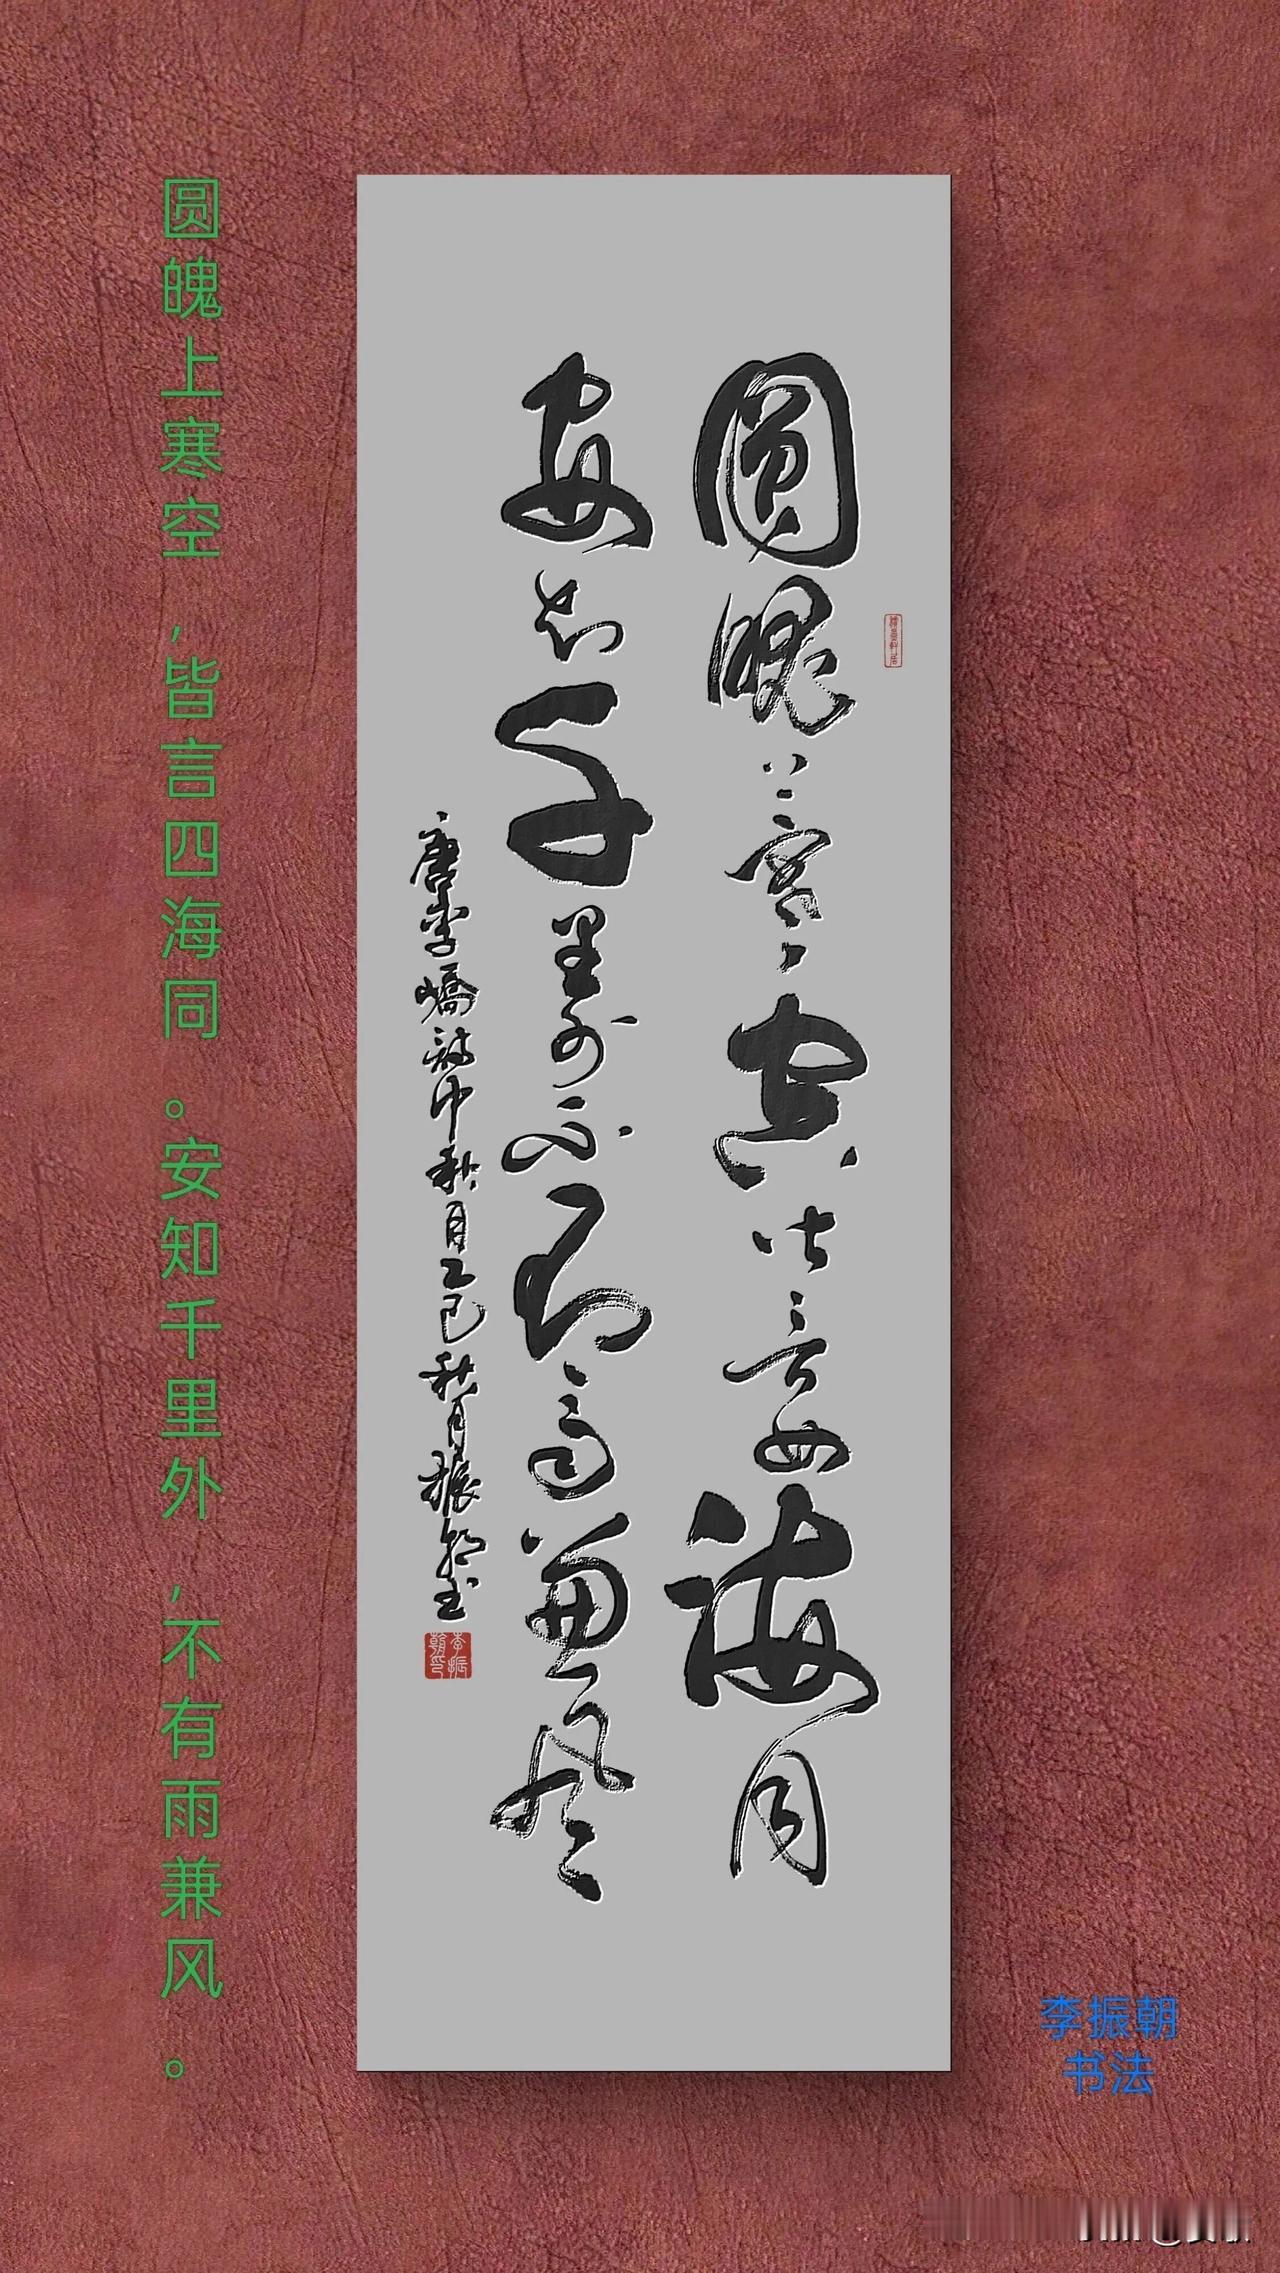 圆魄上寒空
皆言四海同
安知千里外不
有雨兼风
唐李峤诗中秋月乙巳秋月振朝书
李振朝印
圆魄上寒空,皆言四海同。安知千里外,不有雨兼风。
李振朝
书法